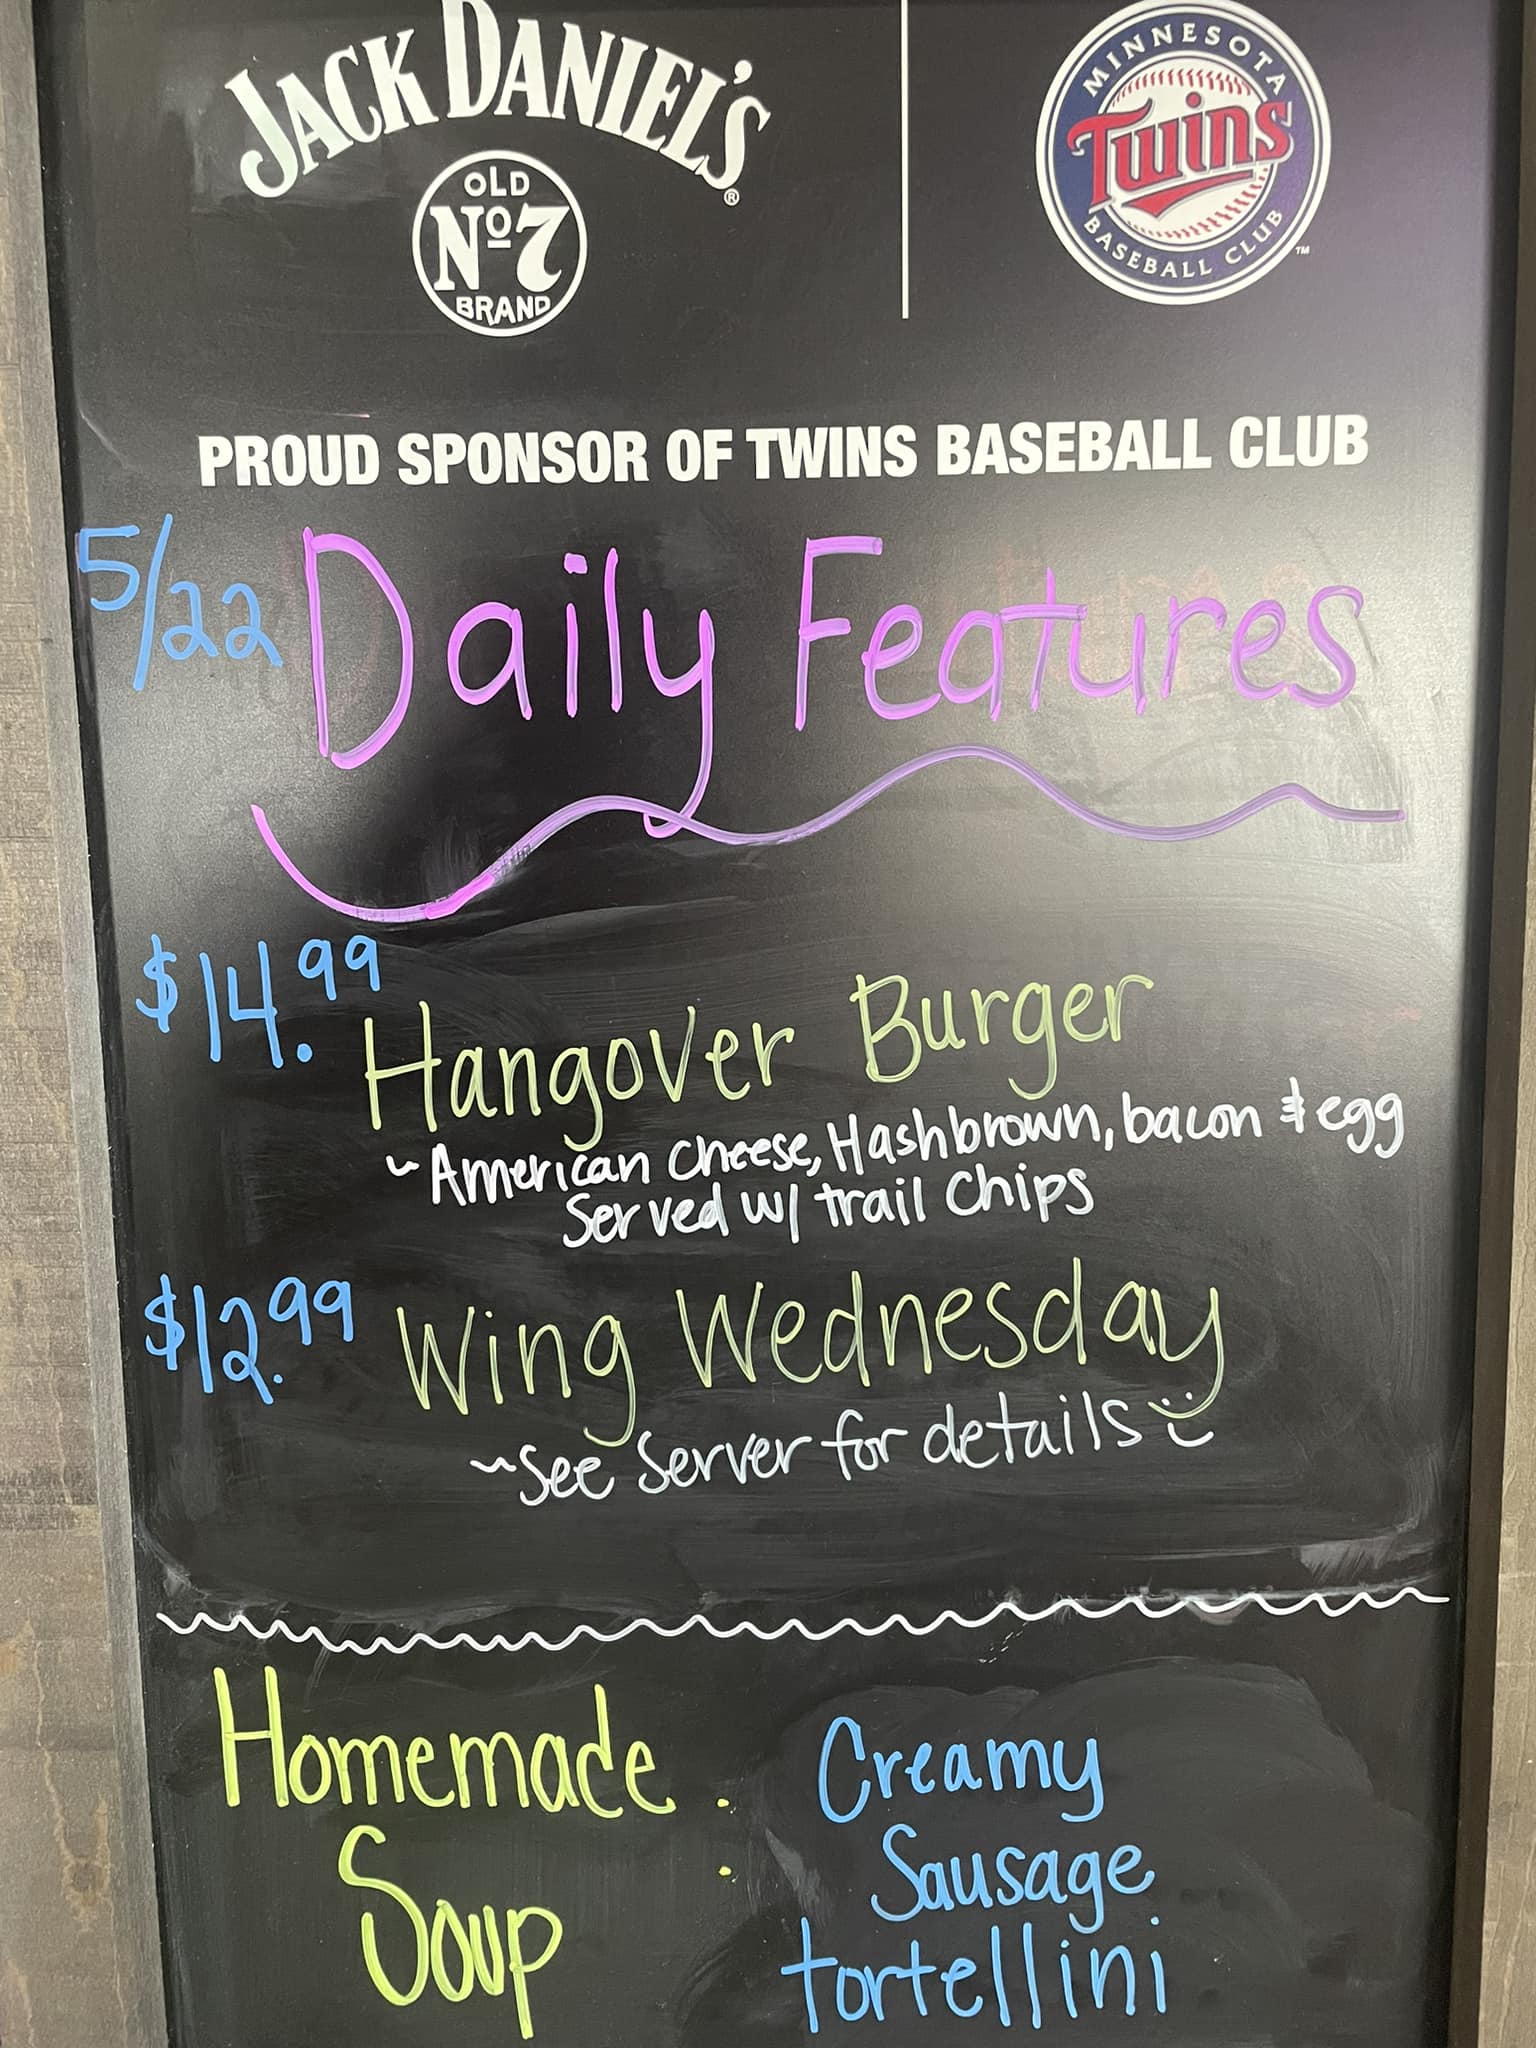 JACK DANIEL'S®
OLD
No7
BRAND
MINNESOTA
Twins
BASEBALL CLUB
™
PROUD SPONSOR OF TWINS BASEBALL CLUB
5/22 Daily Features
$14.99 Hangover Burger
~ American cheese, Hashbrown, bacon & egg
Served w/ trail chips
$12.99 Wing Wednesday
~ See Server for details
Homemade : Creamy
Soup Sausage
tortellini